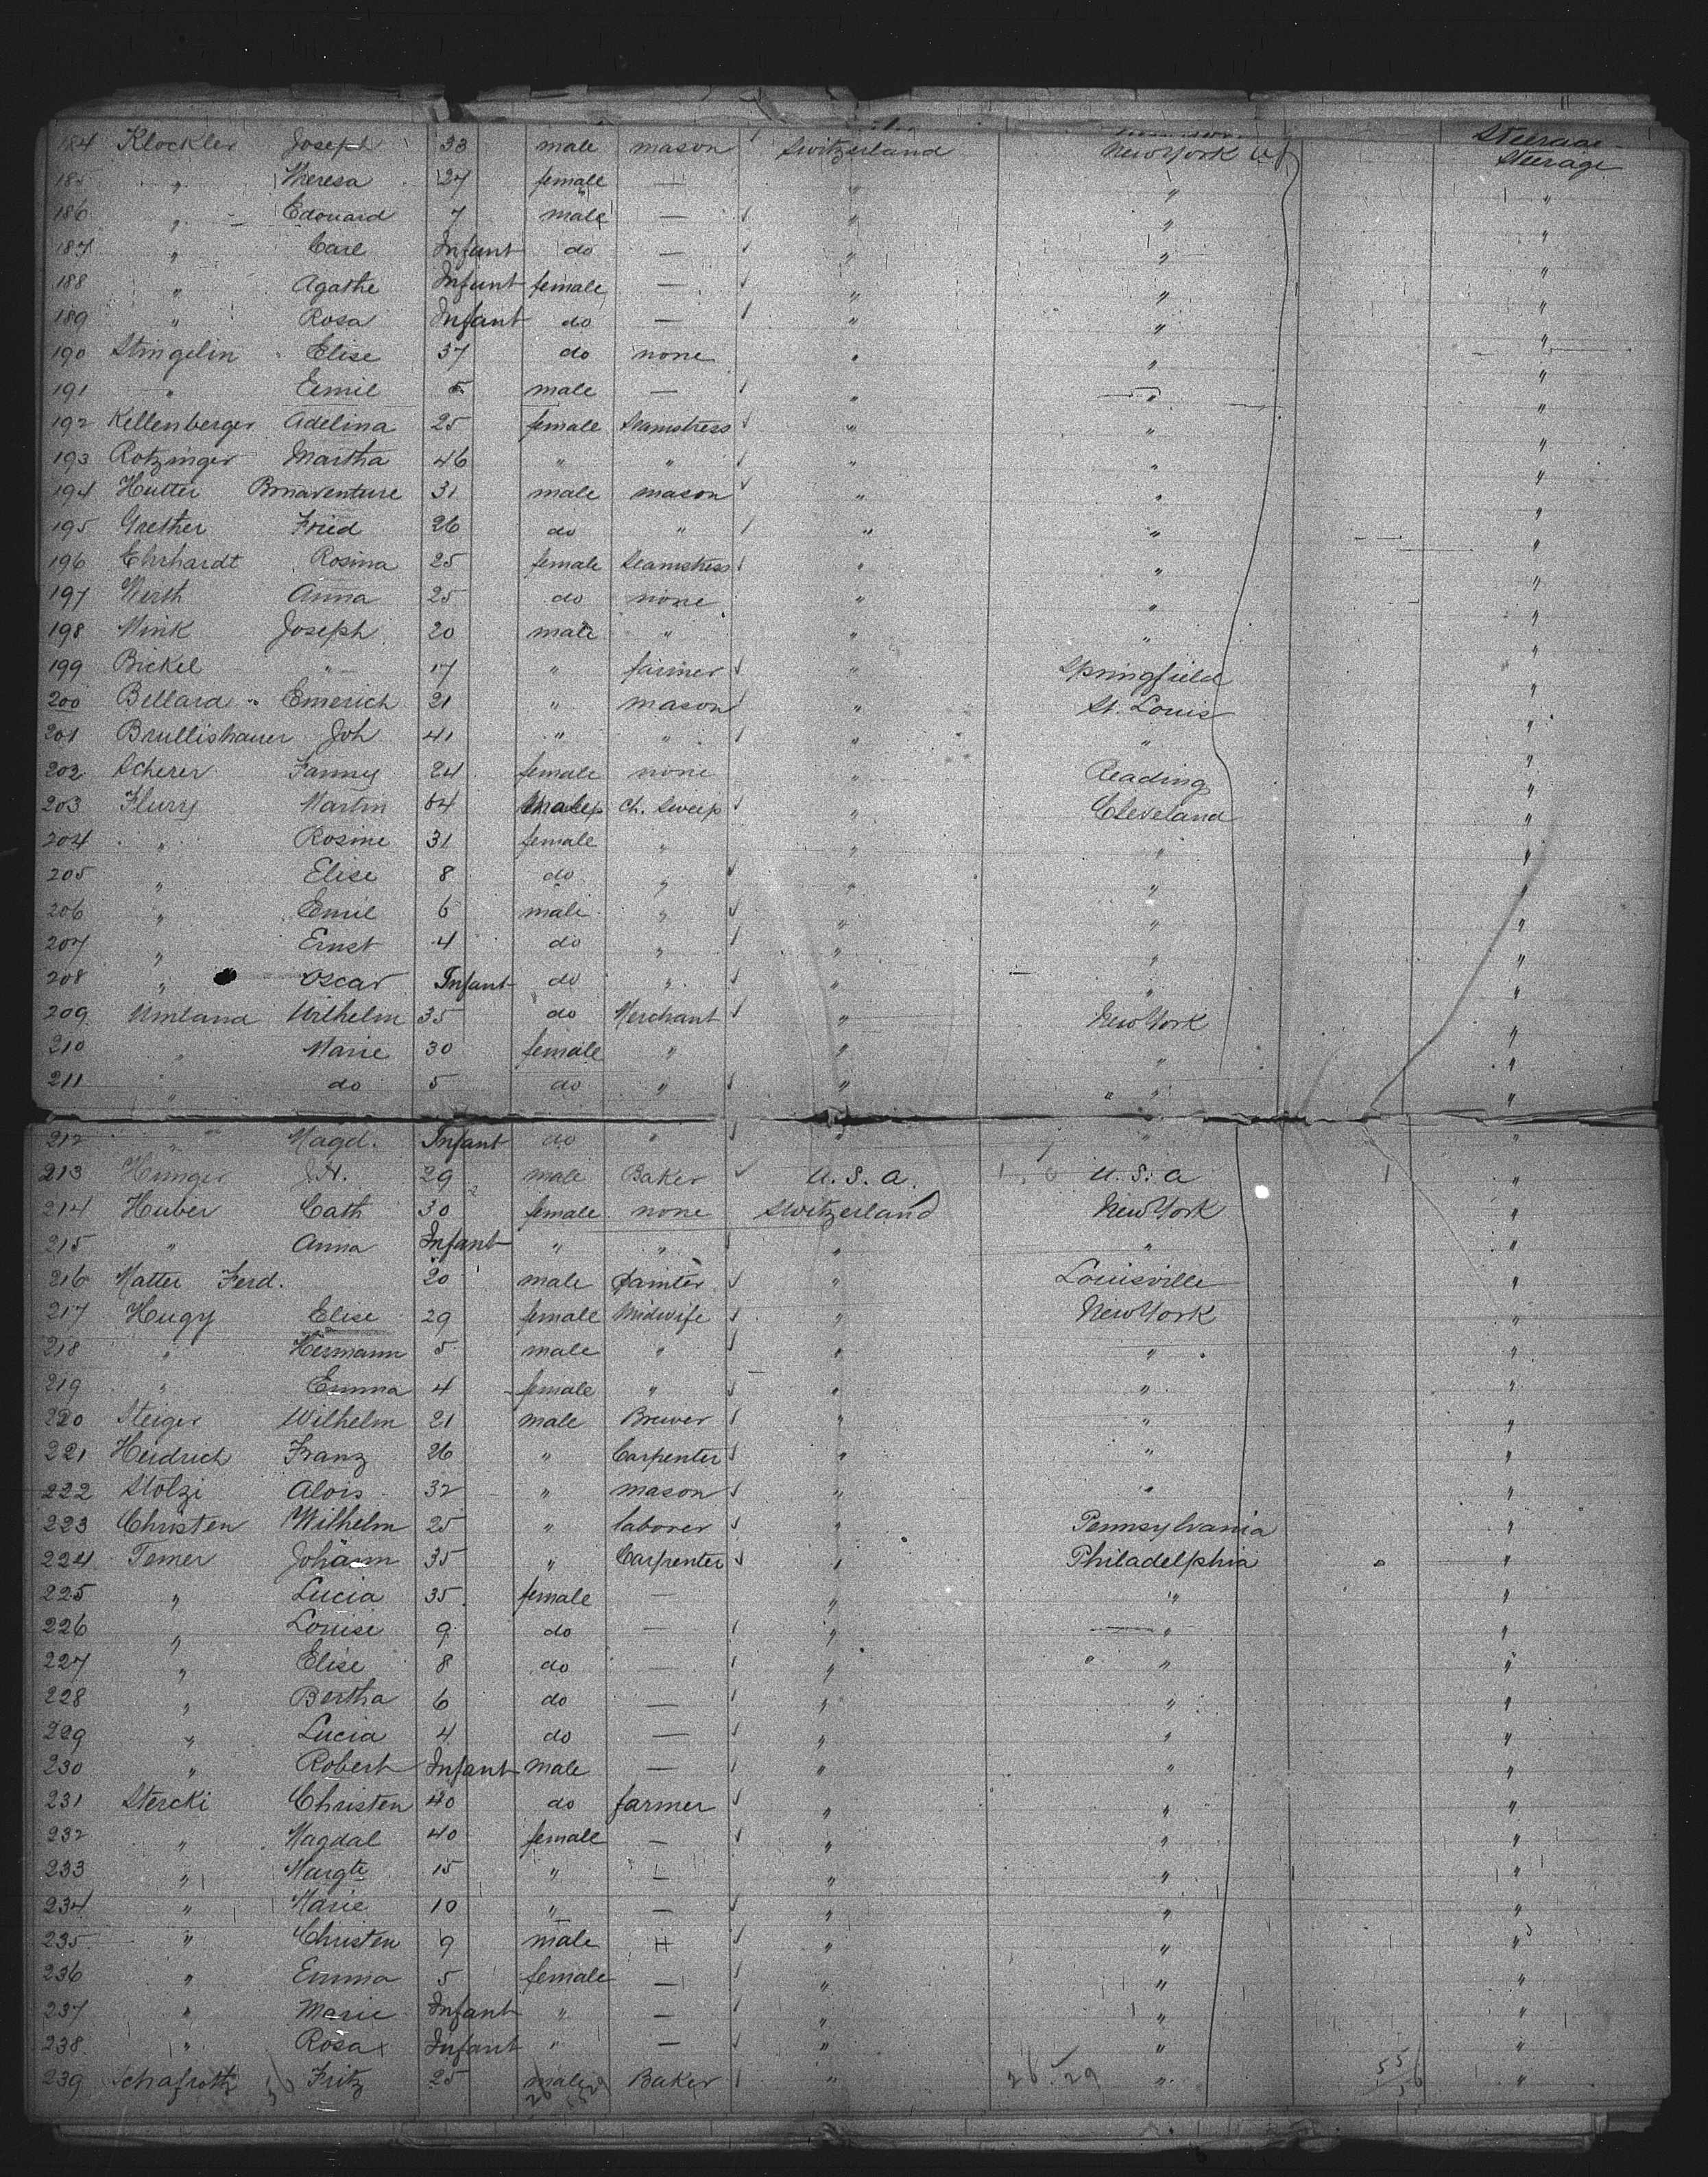 Steerage
184 Klockler Joseph 33 male mason Switzerland New York Steerage
185 " Theresa 27 female — " " "
186 " Edouard 7 male — " " "
187 " Carl Infant do — " " "
188 " Agathe Infant female — " " "
189 " Rosa Infant do — " " "
190 Stingelin Elise 37 do none " " "
191 " Emil 5 male — " " "
192 Kellenberger Adelina 25 female Seamstress " " "
193 Rotzinger Martha 46 " " " " "
194 Hutter Bonaventure 31 male mason " " "
195 Grether Fried 26 do " " " "
196 Ehrhardt Rosina 25 female Seamstress " " "
197 Werth Anna 25 do none " " "
198 Mink Joseph 20 male " " " "
199 Bickel " 17 " farmer " Springfield "
200 Bellard Emerich 21 " mason " St. Louis "
201 Brullishauer Joh 41 " " " " "
202 Scherer Fanny 24 female none " Reading "
203 Flury Martin 64 male ch. sweep " Cleveland "
204 " Rosine 31 female " " " "
205 " Elise 8 do " " " "
206 " Emil 6 male " " " "
207 " Ernst 4 do " " " "
208 " Oscar Infant do " " " "
209 Umland Wilhelm 35 do Merchant " New York "
210 " Marie 30 female " " " "
211 " do 5 do " " " "
212 " Magd. Infant do " " " "
213 Hunger J.H. 29 male Baker U.S.A. U.S.A "
214 Huber Cath 30 female none Switzerland New York "
215 " Anna Infant " " " " "
216 Matter Ferd. 20 male painter " Louisville "
217 Hugy Elise 29 female Midwife " New York "
218 " Hermann 5 male " " " "
219 " Emma 4 female " " " "
220 Steiger Wilhelm 21 male Brewer " " "
221 Heidrich Franz 26 " Carpenter " " "
222 Stolzi Alois 32 " mason " " "
223 Christen Wilhelm 25 " laborer " Pennsylvania "
224 Temer Johann 35 " Carpenter " Philadelphia "
225 " Lucia 35 female — " " "
226 " Louise 9 do — " " "
227 " Elise 8 do — " " "
228 " Bertha 6 do — " " "
229 " Lucia 4 do — " " "
230 " Robert Infant male — " " "
231 Stercki Christen 40 do farmer " " "
232 " Magdal 40 female — " " "
233 " Margte 15 " — " " "
234 " Marie 10 " — " " "
235 " Christen 9 male — " " "
236 " Emma 5 female — " " "
237 " Marie Infant " — " " "
238 " Rosa Infant " — " " "
239 Schafroth Fritz 25 male Baker " 26 29 " "